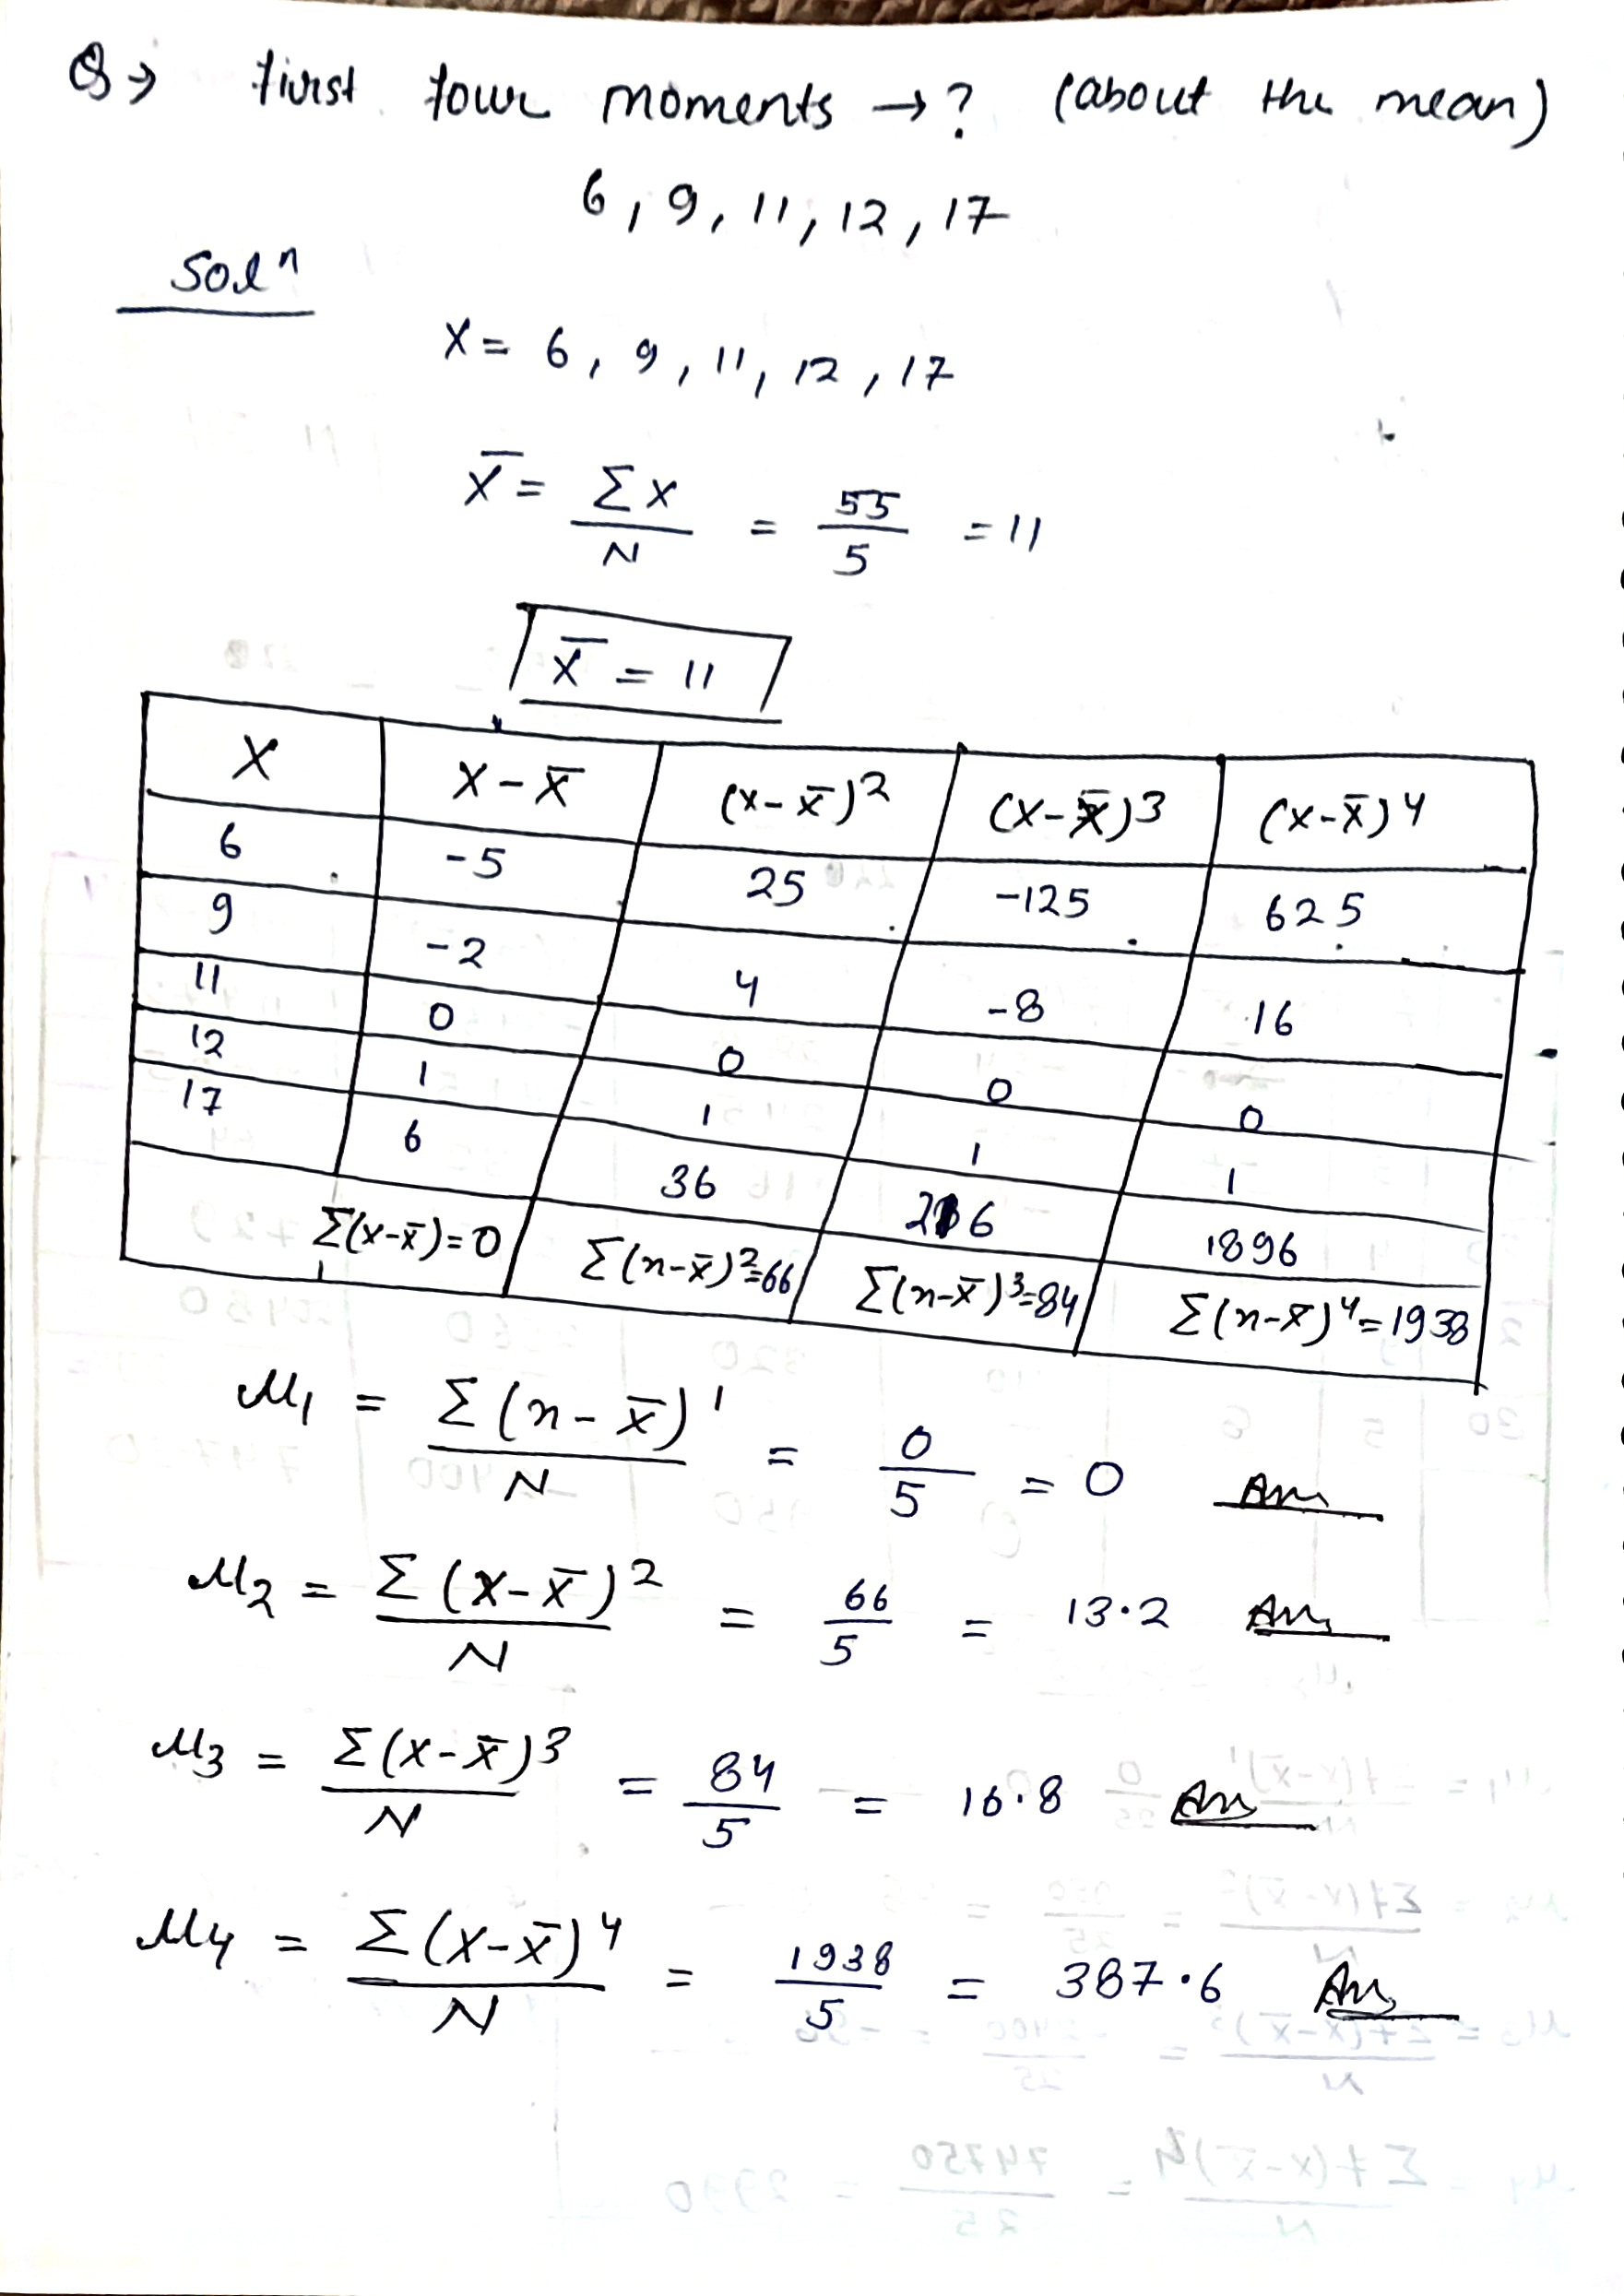 Q→ first four moments →? (about the mean)
6, 9, 11, 12, 17
Solⁿ
X = 6, 9, 11, 12, 17
X̄ = ΣX/N = 55/5 = 11
X̄ = 11
X | X-X̄ | (x-x̄)² | (x-x̄)³ | (x-x̄)⁴
6 | -5 | 25 | -125 | 625
9 | -2 | 4 | -8 | 16
11 | 0 | 0 | 0 | 0
12 | 1 | 1 | 1 | 1
17 | 6 | 36 | 216 | 1896
Σ(x-x̄)=0 | Σ(n-x̄)²=66 | Σ(n-x̄)³=84 | Σ(n-x̄)⁴=1938
μ₁ = Σ(n-x̄)¹/N = 0/5 = 0 Ans
μ₂ = Σ(x-x̄)²/N = 66/5 = 13.2 Ans
μ₃ = Σ(x-x̄)³/N = 84/5 = 16.8 Ans
μ₄ = Σ(x-x̄)⁴/N = 1938/5 = 387.6 Ans